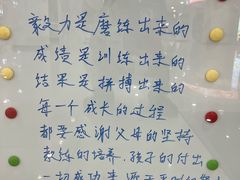 毅力是磨练出来的
成绩是训练出来的
结果是拼搏出来的
每一个成长的过程
都要感谢父母的坚持
教练的培养.孩子的付出
一切成功来源于平时的努力